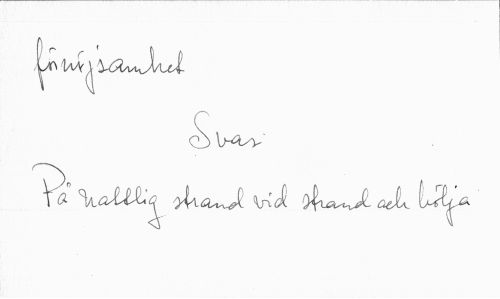 förnöjsamhet
Svar
På nattlig strand vid strand och bölja